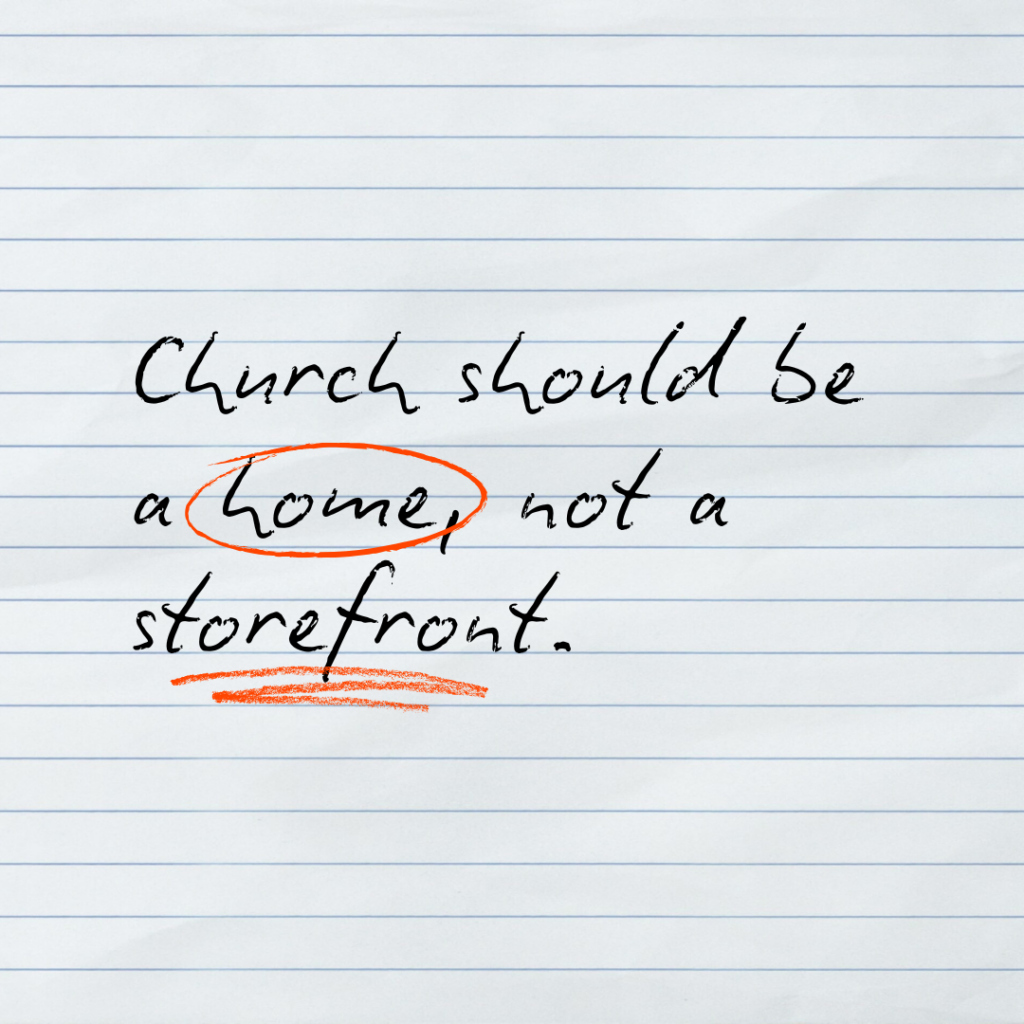 Church should be
a home, not a
storefront.